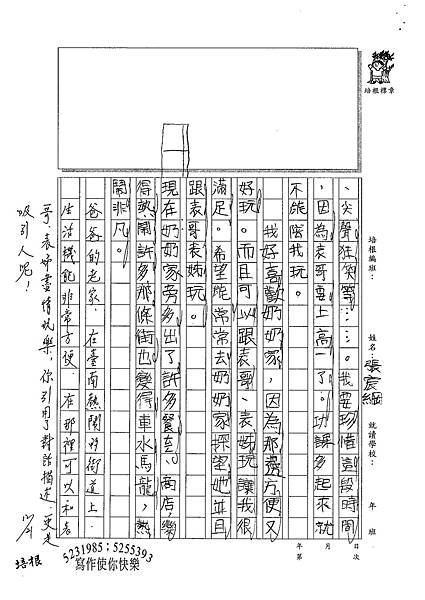 培根標章
培根編班：
姓名：張宸綱
就讀學校：
年 班
年 月 日
第 次
、尖聲狂笑等……。我要珍惜這段時間
，因為表哥要上高一了。功課多起來就
不能陪我玩。
我好喜歡奶奶家，因為那邊方便又
好玩。而且可以跟表哥、表姊玩讓我很
滿足。希望能常常去奶奶家探望她並且
跟表哥表姊玩。
現在奶奶家旁多出了許多餐車。商店，變
得熱鬧許多那條街也變得車水馬龍，熱
鬧非凡。
爸爸的老家，在臺南熱鬧的街道上，
生活機能非常方便，在那裡可以和表
哥、表姊盡情玩樂，你引用了對話描述，更是
吸引人呢！
5231985；5255393
寫作使你快樂
培根